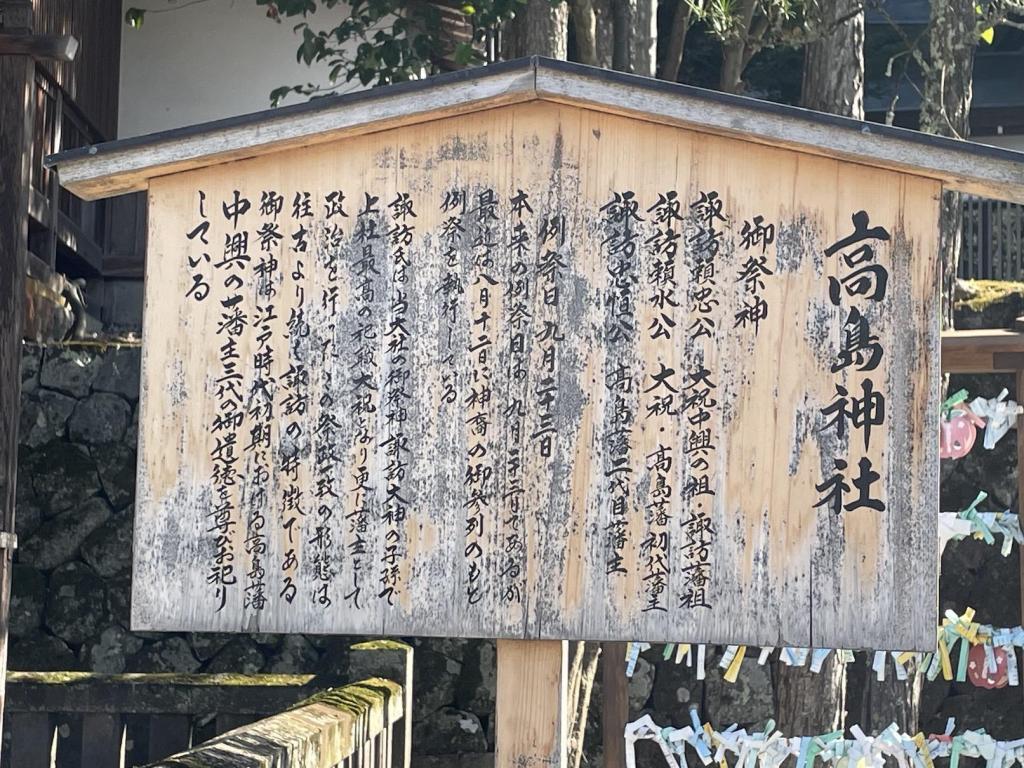 高島神社
御祭神
諏訪頼忠公 大祝中興の祖・諏訪藩祖
諏訪頼水公 大祝・高島藩初代藩主
諏訪忠恒公 高島藩二代目藩主
例祭日 九月二十三日
本来の例祭日は 九月二十三日であるが
最近は八月十二日に神裔の御参列のもと
例祭を執行している
諏訪氏は当大社の御祭神諏訪大神の子孫で
上社最高の祀職大祝となり更に藩主として
政治を行った この祭政一致の形態は
往古より続く諏訪の特徴である
御祭神は江戸時代初期における高島藩
中興の藩主三代 御遺徳を尊びお祀り
している